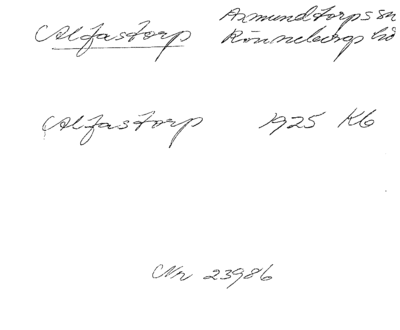 Alfastorp Asmundtorps sn
Rönnebergs hd
Alfastorp 1925 Kb
Nr 23986